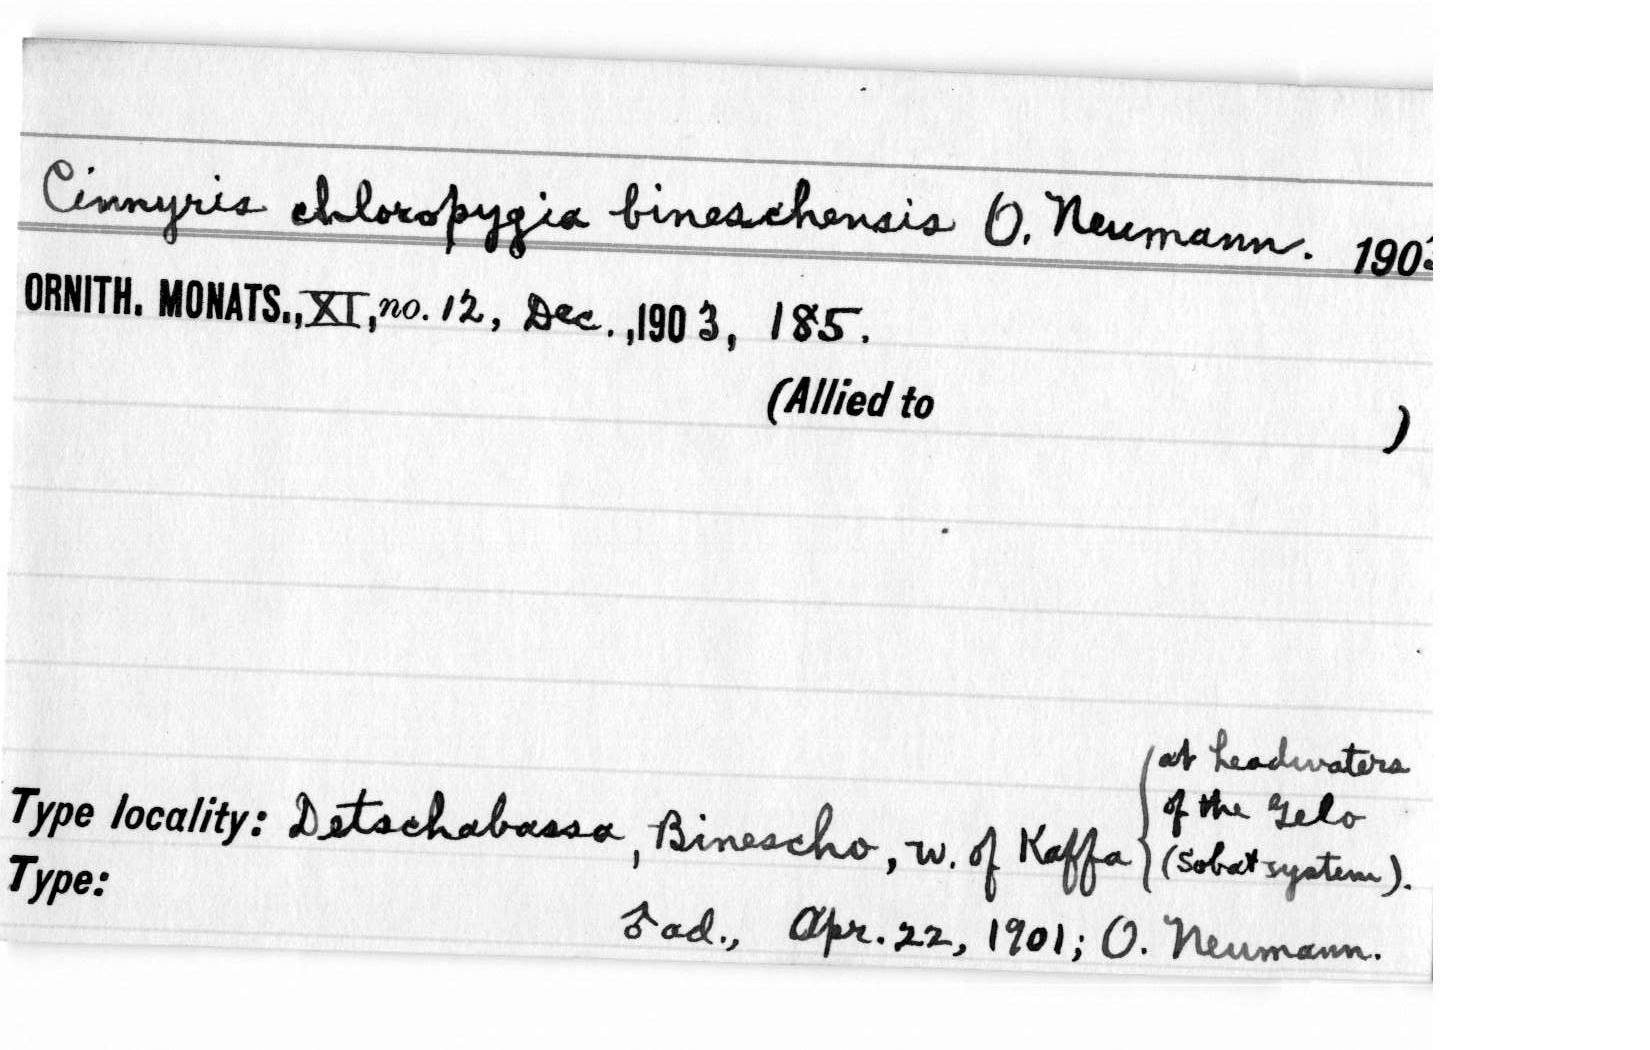 Cinnyris chloropygia bineschensis O. Neumann. 1903
ORNITH. MONATS., XI, no. 12, Dec., 1903, 185.
(Allied to )
at headwaters
of the Gelo
(Sobat system).
Type locality: Detschabassa, Binescho, w. of Kaffa
Type:
♂ ad., Apr. 22, 1901; O. Neumann.